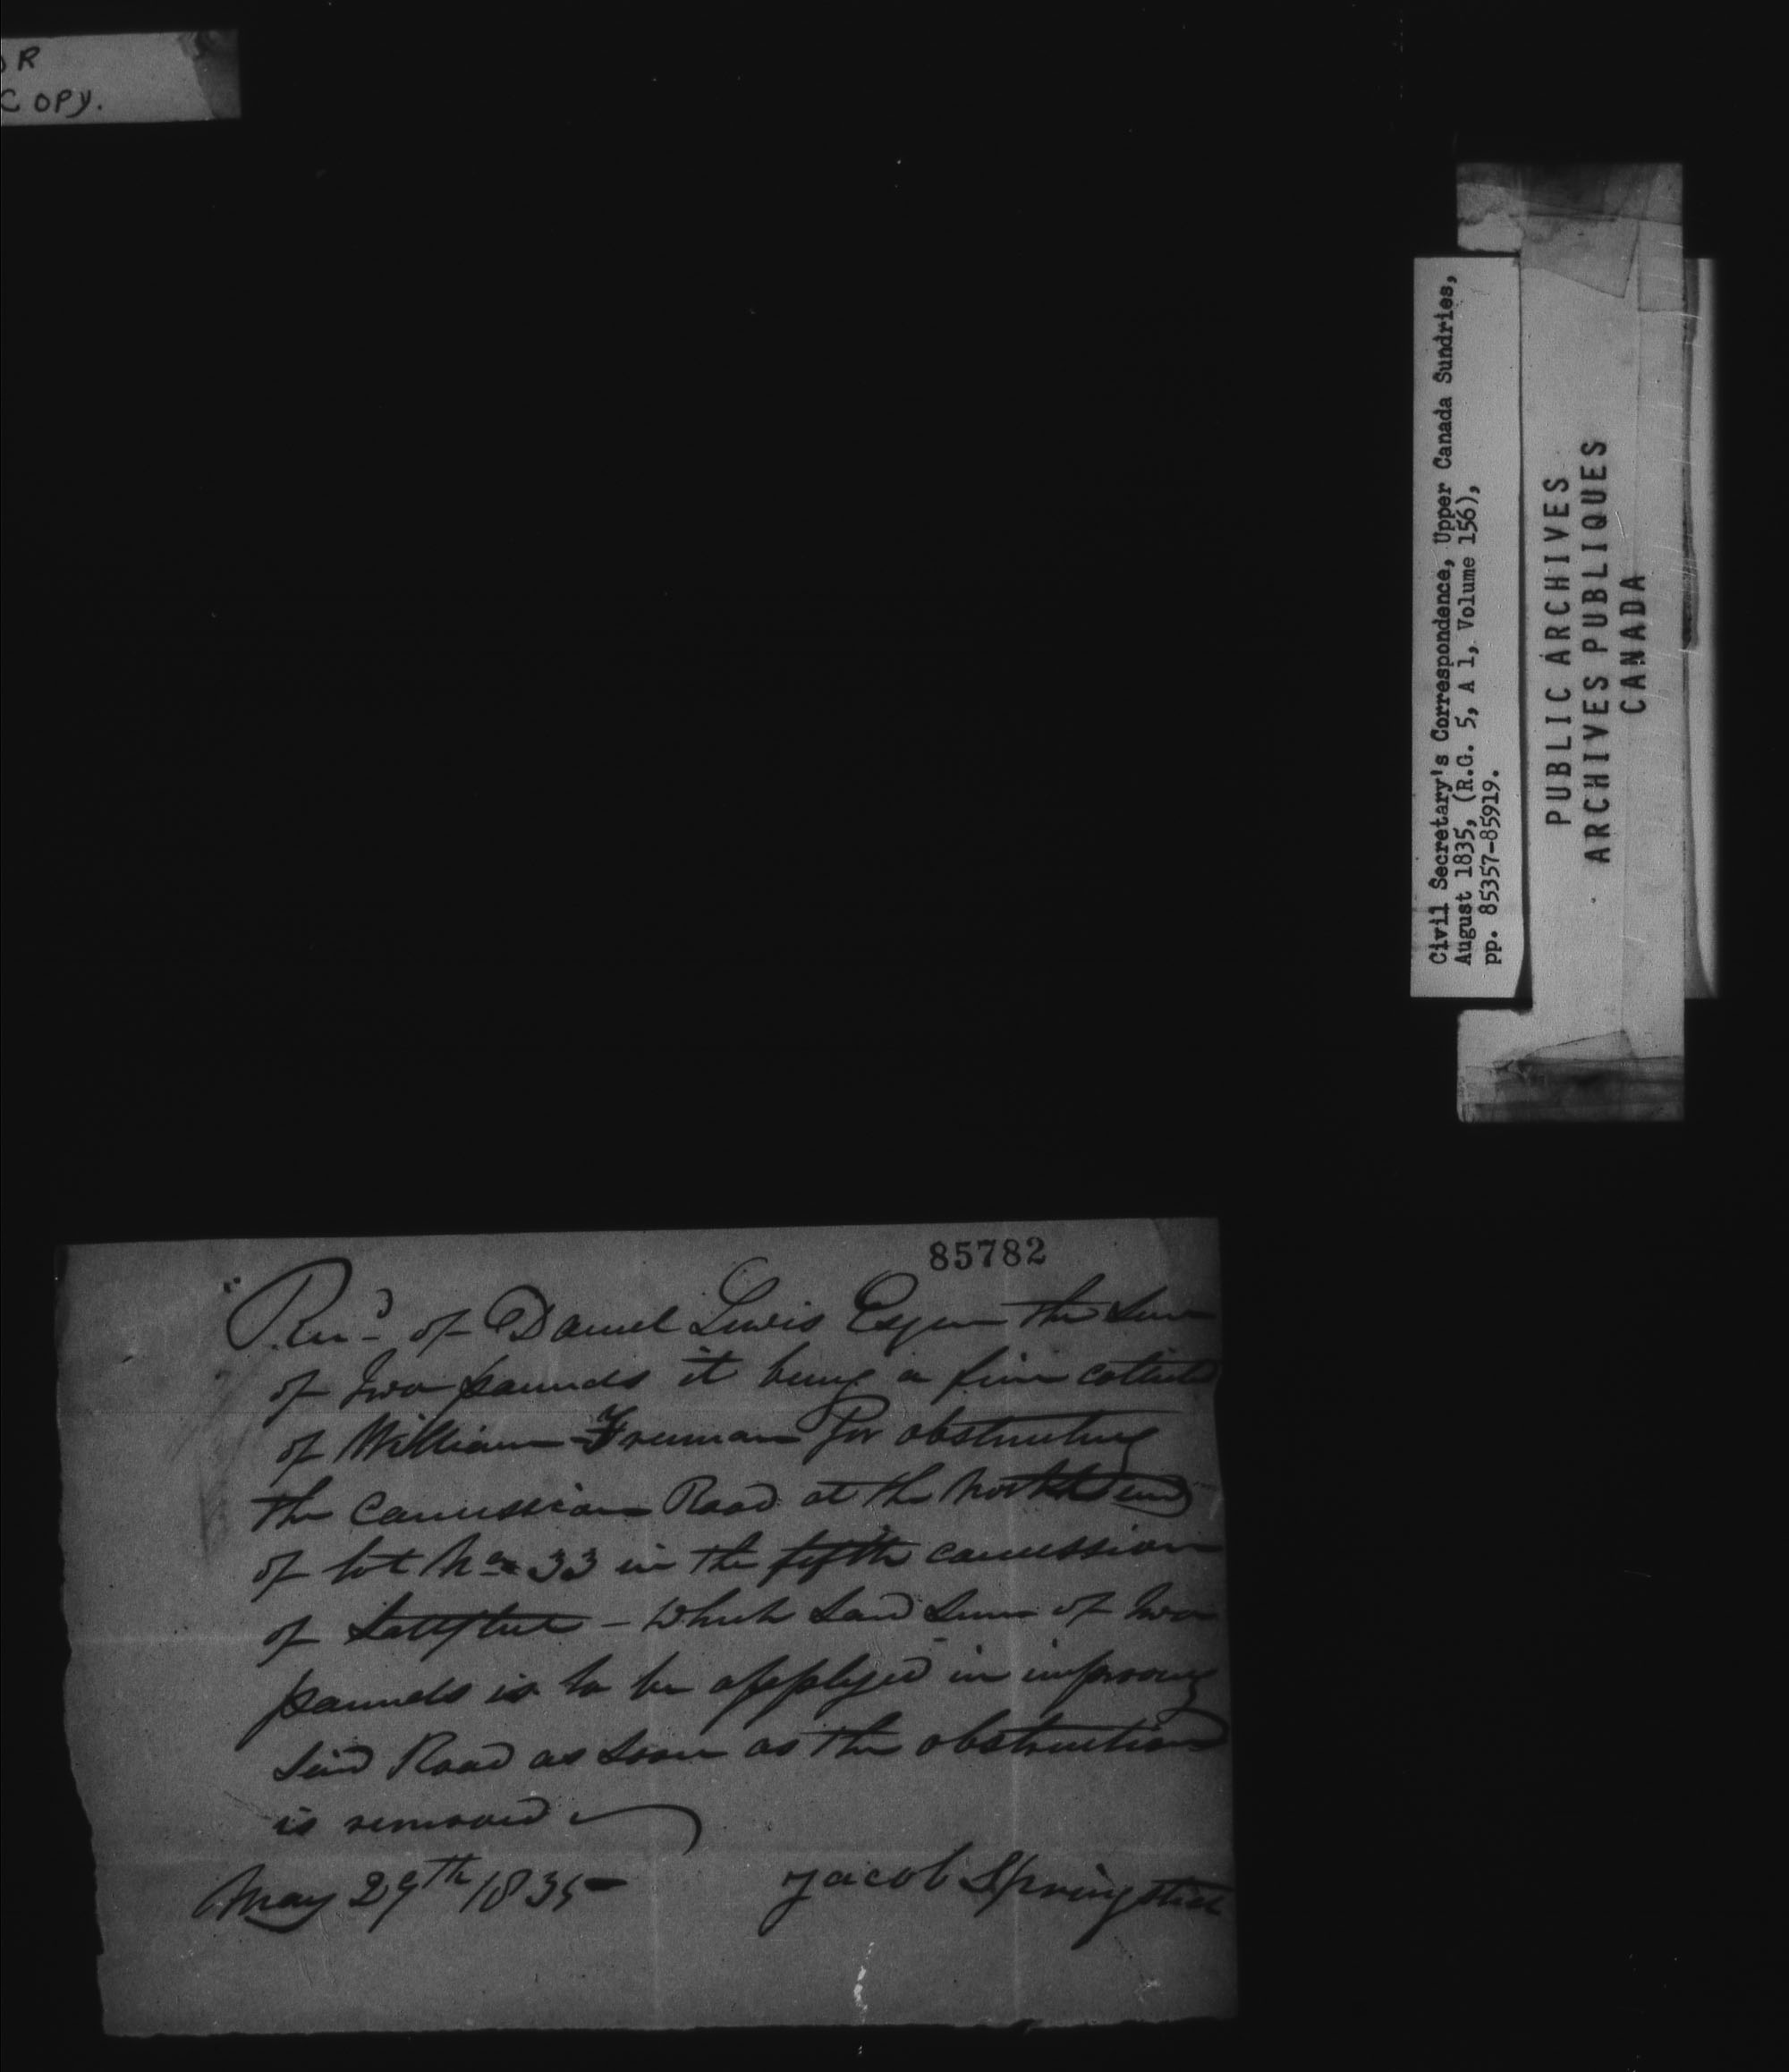 OR
COPY.
Civil Secretary's Correspondence, Upper Canada Sundries,
August 1835, (R.G. 5, A 1, Volume 156),
pp. 85357-85919.
PUBLIC ARCHIVES
ARCHIVES PUBLIQUES
CANADA
85782
Recd of Daniel Lewis Esqr the Sum
of Two pounds it being a fine collected
of William Freeman for obstructing
the Concession Road at the North end
of lot No 33 in the fifth concession
of Saltfleet - Which Said Sum of Two
pounds is to be applyed in improving
Said Road as Soon as the obstruction
is removed
May 29th 1835 Jacob Springsteen